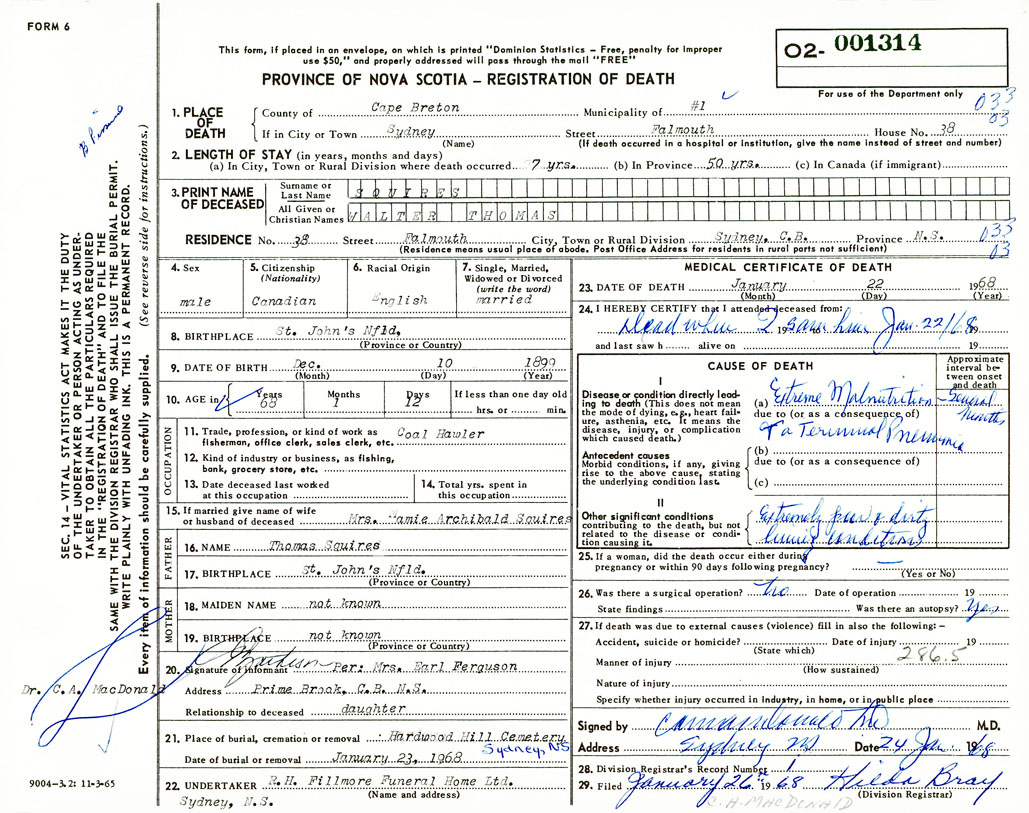 FORM 6
This form, if placed in an envelope, on which is printed "Dominion Statistics – Free, penalty for improper
use $50," and properly addressed will pass through the mail "FREE"
PROVINCE OF NOVA SCOTIA – REGISTRATION OF DEATH
02- 001314
For use of the Department only
033
03
1. PLACE OF DEATH
County of Cape Breton Municipality of #1
If in City or Town Sydney Street Falmouth House No. 38
(Name) (If death occurred in a hospital or institution, give the name instead of street and number)
2. LENGTH OF STAY (in years, months and days)
(a) In City, Town or Rural Division where death occurred 7 yrs. (b) In Province 50 yrs. (c) In Canada (if immigrant)
3. PRINT NAME OF DECEASED
Surname or Last Name SQUIRES
All Given or Christian Names WALTER THOMAS
RESIDENCE No. 38 Street Falmouth City, Town or Rural Division Sydney, C.B. Province N.S.
(Residence means usual place of abode. Post Office Address for residents in rural parts not sufficient)
033
03
4. Sex
male
5. Citizenship
(Nationality)
Canadian
6. Racial Origin
English
7. Single, Married,
Widowed or Divorced
(write the word)
married
8. BIRTHPLACE St. John's Nfld.
(Province or Country)
9. DATE OF BIRTH Dec. 10 1899
(Month) (Day) (Year)
10. AGE in
Years Months Days If less than one day old
68 1 12 hrs. or min.
OCCUPATION
11. Trade, profession, or kind of work as
fisherman, office clerk, sales clerk, etc. Coal Hawler
12. Kind of industry or business, as fishing,
bank, grocery store, etc.
13. Date deceased last worked
at this occupation
14. Total yrs. spent in
this occupation
15. If married give name of wife
or husband of deceased Mrs. Mamie Archibald Squires
FATHER
16. NAME Thomas Squires
17. BIRTHPLACE St. John's Nfld.
(Province or Country)
MOTHER
18. MAIDEN NAME not known
19. BIRTHPLACE not known
(Province or Country)
20. Signature of informant Per: Mrs. Earl Ferguson
Address Prime Brook, C.B. N.S.
Relationship to deceased daughter
21. Place of burial, cremation or removal Hardwood Hill Cemetery
Sydney, NS
Date of burial or removal January 23, 1968
22. UNDERTAKER R.H. Fillmore Funeral Home Ltd.
(Name and address)
Sydney, N.S.
MEDICAL CERTIFICATE OF DEATH
23. DATE OF DEATH January 22 1968
(Month) (Day) (Year)
24. I HEREBY CERTIFY that I attended deceased from:
Dead when I saw him Jan 22/68
19 19
and last saw h alive on 19
CAUSE OF DEATH
Approximate
interval be-
tween onset
and death
I
Disease or condition directly lead-
ing to death (This does not mean
the mode of dying, e.g., heart fail-
ure, asthenia, etc. It means the
disease, injury, or complication
which caused death.)
(a) Extreme Malnutrition – Several Months
due to (or as a consequence of)
To Terminal Pneumonia
Antecedent causes
Morbid conditions, if any, giving
rise to the above cause, stating
the underlying condition last.
(b)
due to (or as a consequence of)
(c)
II
Other significant conditions
contributing to the death, but not
related to the disease or condi-
tion causing it.
Extremely poor & dirty
living conditions
25. If a woman, did the death occur either during
pregnancy or within 90 days following pregnancy? —
(Yes or No)
26. Was there a surgical operation? No Date of operation 19
State findings Was there an autopsy? Yes
27. If death was due to external causes (violence) fill in also the following: –
Accident, suicide or homicide? Date of injury 19
(State which)
286.5
Manner of injury
(How sustained)
Nature of injury
Specify whether injury occurred in industry, in home, or in public place
Signed by M.D.
Address Sydney NS Date 24 Jan 1968
28. Division Registrar's Record Number 1
29. Filed January 26th 1968 Hilda Bray
(Division Registrar)
C.A. MACDONALD
SEC. 14 – VITAL STATISTICS ACT MAKES IT THE DUTY
OF THE UNDERTAKER OR PERSON ACTING AS UNDER-
TAKER TO OBTAIN ALL THE PARTICULARS REQUIRED
IN THE "REGISTRATION OF DEATH" AND TO FILE THE
SAME WITH THE DIVISION REGISTRAR WHO SHALL ISSUE THE BURIAL PERMIT.
WRITE PLAINLY WITH UNFADING INK. THIS IS A PERMANENT RECORD.
Every item of information should be carefully supplied. (See reverse side for instructions.)
Dr. C.A. MacDonald
9004–3.2: 11-3-65